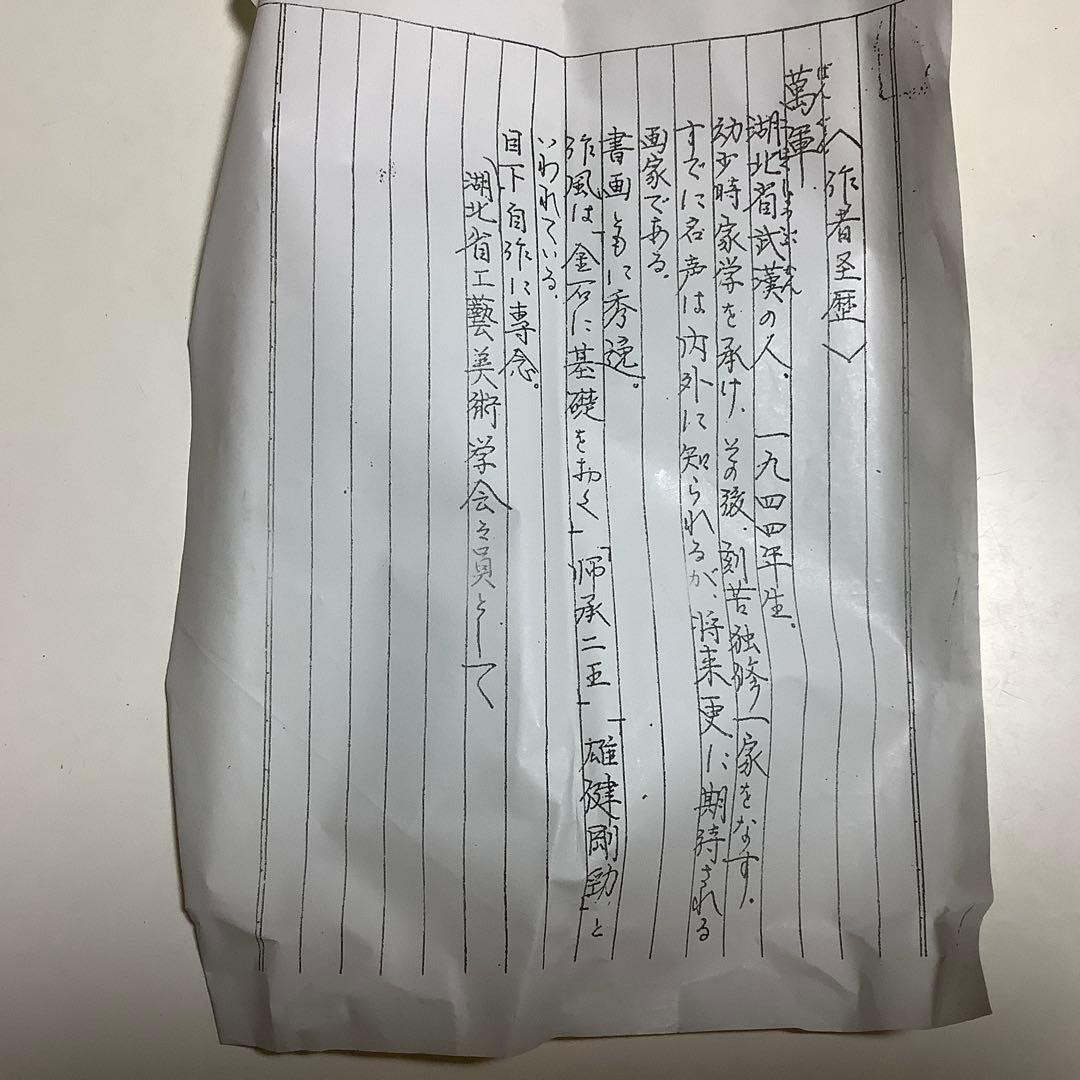 〈作者圣歴〉
萬軍
ばんぐん
湖北省武漢の人、一九四四年生。
こほくしょうぶかん
幼少時家学を承け、その後、刻苦独修一家をなす、
すでに名声は内外に知られるが、将来更に期待される
画家である。
書画ともに秀逸。
作風は「金石に基礎をおく」「师承二王」「雄健剛勁」と
いわれている、
目下自作に専念。
湖北省工藝美術学会々員として